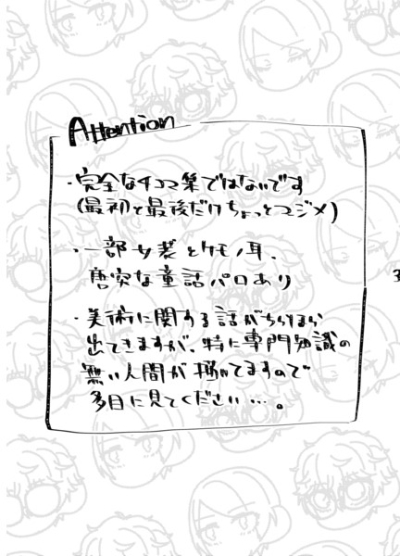 Attention
・完全な4コマ集ではないです
(最初と最後だけちょっとマジメ)
・一部女装とケモノ耳、
唐突な童話パロあり
・美術に関する話がちらほら
出てきますが、特に専門知識の
無い人間が描いてますので
多目に見てください…。